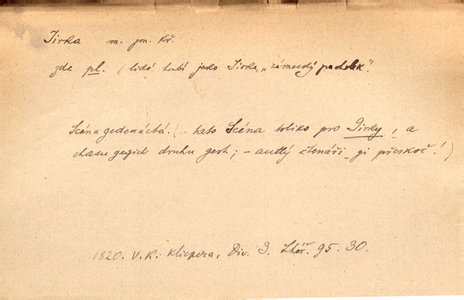 Jirka m. jm. kř.
zde pl. (lidé hrubí jako Jirka, „zámecký pudlík“.
Scéna gedenáctá. (.. tato Scéna toliko pro Jirky, a
chasu gegich druhu gest; – auttlý čtenáři – gi přeskoč!)
1820. V. K. Klicpera, Div. 3. Lhář. 95. 30.